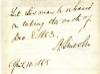 Let this man be released
on taking the oath of
Dec. 8. 1863.
A. Lincoln